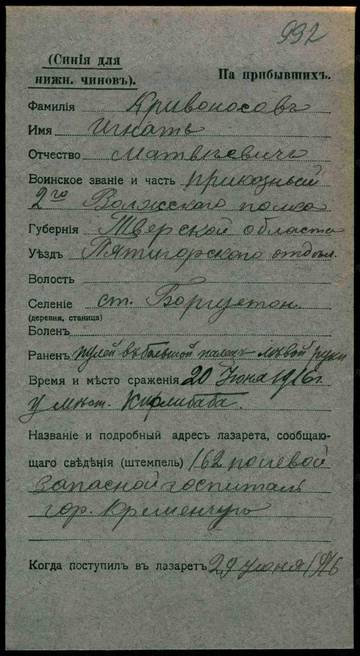 992
(Синія для
нижн. чиновъ).
На прибывшихъ.
Фамилія Кривоносовъ
Имя Игнатъ
Отчество Матвѣевичъ
Воинское званіе и часть приказный
2го Волжскаго полка
Губернія Тверской области
Уѣздъ Пятигорскаго отдѣл.
Волость
Селеніе ст. Боргустан.
(деревня, станица)
Боленъ
Раненъ пулей въ большой палецъ лѣвой руки
Время и мѣсто сраженія 20 Іюня 1916 г.
у мѣст. Кирлибаба.
Названіе и подробный адресъ лазарета, сообщаю-
щаго свѣдѣнія (штемпель) 162 полевой
запасной госпиталь
гор. Кременчугъ
Когда поступилъ въ лазаретъ 29 Іюня 1916